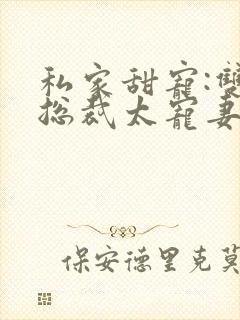 私家甜寵:雙
总裁太寵妻
保安德里克莫